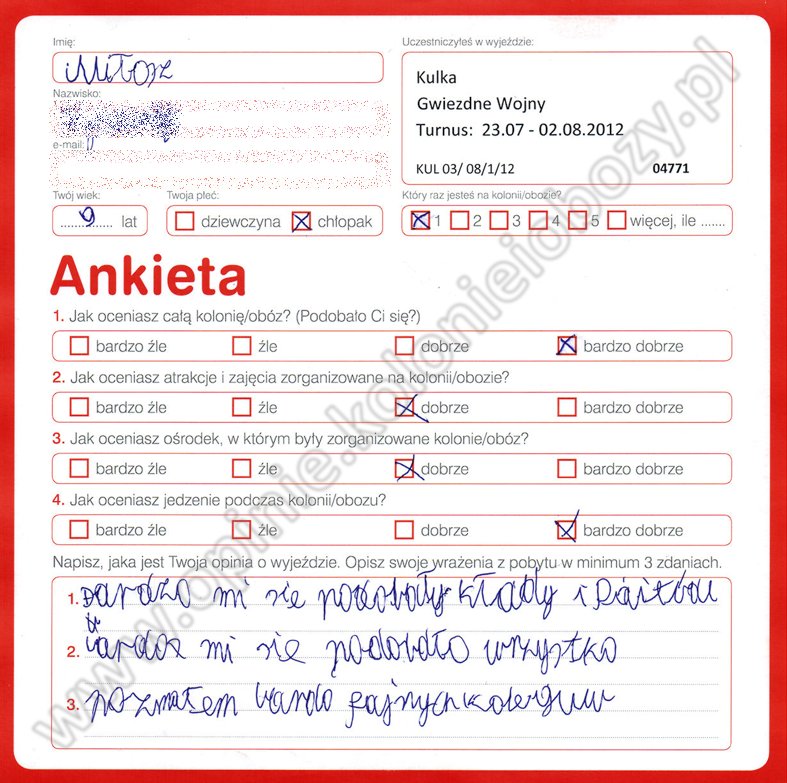 Imię:
Miłosz
Uczestniczyłeś w wyjeździe:
Kulka
Gwiezdne Wojny
Turnus: 23.07 - 02.08.2012
KUL 03/ 08/1/12 04771
Nazwisko:
e-mail:
Twój wiek:
9 lat
Twoja płeć:
dziewczyna chłopak
Który raz jesteś na kolonii/obozie?
1 2 3 4 5 więcej, ile .......
Ankieta
1. Jak oceniasz całą kolonię/obóz? (Podobało Ci się?)
bardzo źle źle dobrze bardzo dobrze
2. Jak oceniasz atrakcje i zajęcia zorganizowane na kolonii/obozie?
bardzo źle źle dobrze bardzo dobrze
3. Jak oceniasz ośrodek, w którym były zorganizowane kolonie/obóz?
bardzo źle źle dobrze bardzo dobrze
4. Jak oceniasz jedzenie podczas kolonii/obozu?
bardzo źle źle dobrze bardzo dobrze
Napisz, jaka jest Twoja opinia o wyjeździe. Opisz swoje wrażenia z pobytu w minimum 3 zdaniach.
1. Bardzo mi sie podobały kłady i
2. bardoz mi sie podobało wszystko
3. poznałem bardo fajnych koleguw
www.opinie.kolonieiobozy.pl